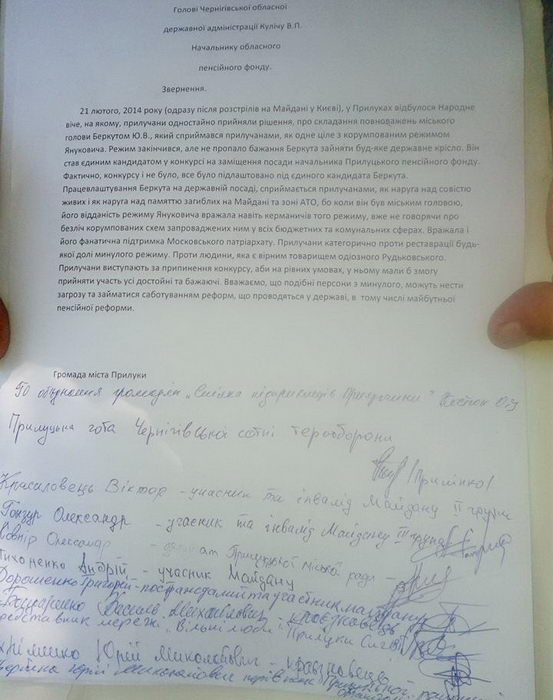 Голові Чернігівської обласної
державної адміністрації Кулічу В.П.
Начальнику обласного
пенсійного фонду.
Звернення.
21 лютого, 2014 року (одразу після розстрілів на Майдані у Києві), у Прилуках відбулося Народне
віче, на якому, прилучани одностайно прийняли рішення, про складання повноважень міського
голови Беркутом Ю.В., який сприймався прилучанами, як одне ціле з корумпованим режимом
Януковича. Режим закінчився, але не пропало бажання Беркута зайняти будь-яке державне крісло. Він
став єдиним кандидатом у конкурсі на заміщення посади начальника Прилуцького пенсійного фонду.
Фактично, конкурсу і не було, все було підлаштовано під єдиного кандидата Беркута.
Працевлаштування Беркута на державній посаді, сприймається прилучанами, як наруга над совістю
живих і як наруга над памяттю загиблих на Майдані та зоні АТО, бо коли він був міським головою,
його відданість режиму Януковича вражала навіть керманичів того режиму, вже не говорячи про
безліч корумпованих схем запроваджених ним у всіх бюджетних та комунальних сферах. Вражала і
його фанатична підтримка Московського патріархату. Прилучани категорично проти реставрації будь-
якої долі минулого режиму. Проти людини, яка є вірним товарищем одіозного Рудьковського.
Прилучани виступають за припинення конкурсу, аби на рівних умовах, у ньому мали б змогу
прийняти участь усі достойні та бажаючі. Вважаємо, що подібні персони з минулого, можуть нести
загрозу та займатися саботуванням реформ, що проводяться у державі, в тому числі майбутньої
пенсійної реформи.
Громада міста Прилуки
ГО об'єднання громадян „Спілка підприємців Прилуччини"
Прилуцька чота Чернігівської сотні тероборони
/Прилипко/
Красиловець Віктор - учасник та інвалід Майдану II групи
Гонзур Олександр - учасник та інвалід Майдану III групи
Олександр - Прилуцької міської ради -
Тихоненко Андрій - учасник Майдану
Дорошенко Григорій - постраждалий та учасник майдану
Василь Михайлович
представник мережі „Вільні люди" Прилуки
Юрій Миколайович -